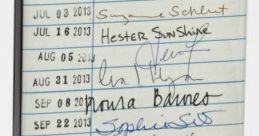 JUL 03 2013 Suzanne Schlert
JUL 16 2013 HESTER SUNSHINE
AUG 05 2013
AUG 31 2013
SEP 08 2013 Barnes
SEP 22 2013 Sophia